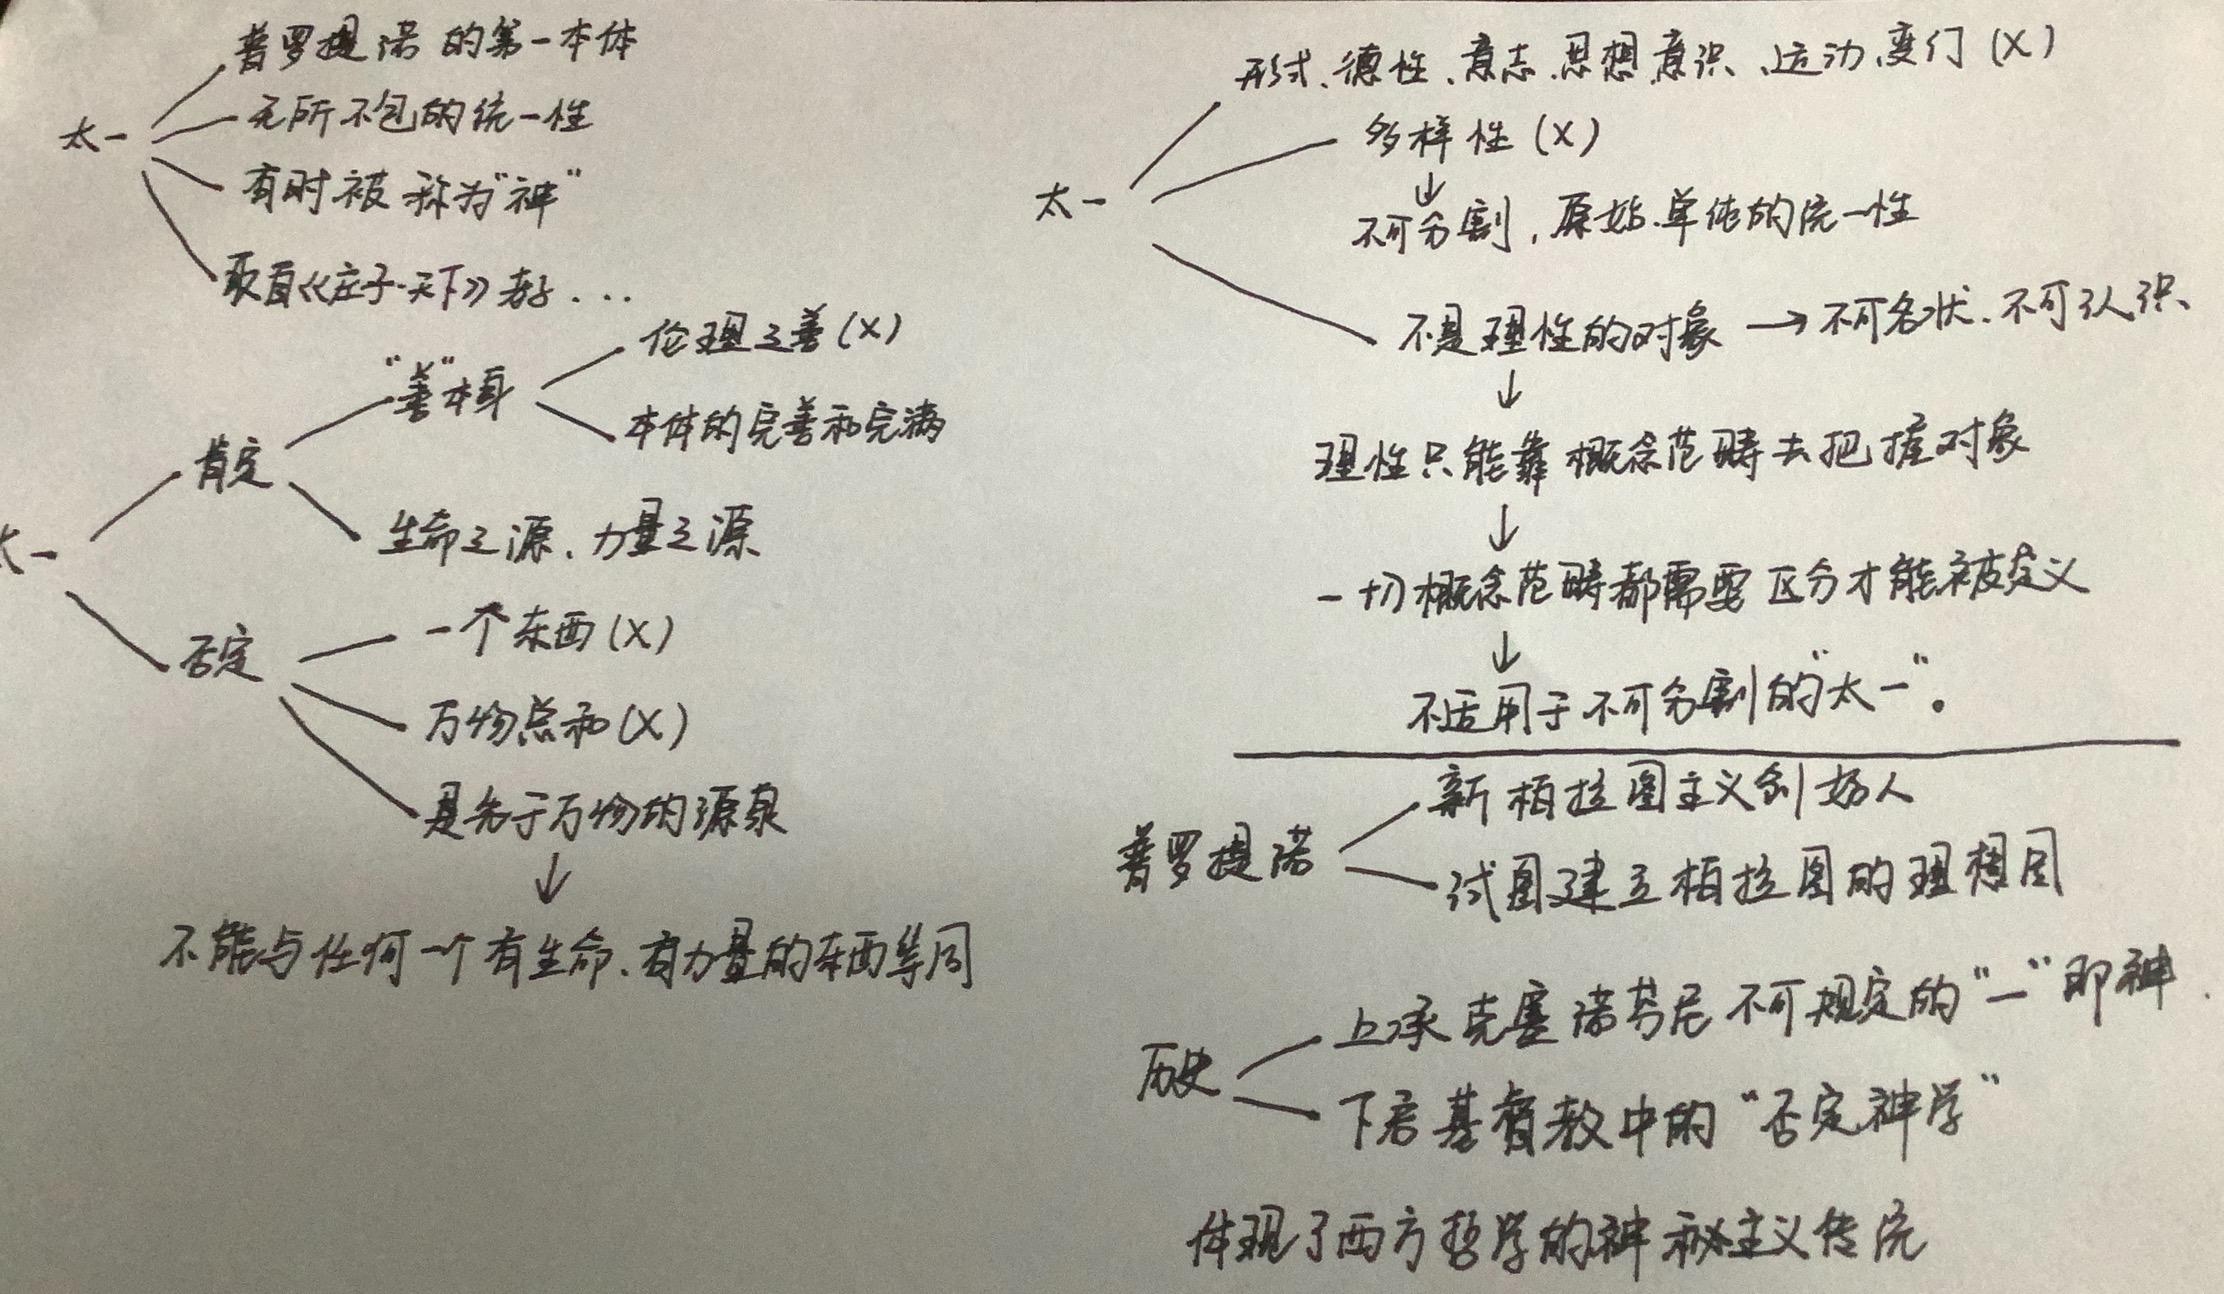 普罗提诺的第一本体
太一
无所不包的统一性
有时被称为“神”
取自《庄子·天下》 ...
伦理之善(X)
“善”本身
本体的完善和完满
肯定
生命之源、力量之源
太一
一个东西(X)
否定
万物总和(X)
是先于万物的源泉
↓
不能与任何一个有生命、有力量的东西等同
形式、德性、意志、思想、意识、运动、变们(X)
多样性(X)
↓
太一
不可分割,原始、单纯的统一性
不是理性的对象→不可名状、不可认识、
↓
理性只能靠概念范畴去把握对象
↓
一切概念范畴都需要区分才能被定义
↓
不适用于不可分割的“太一”。
新柏拉图主义创始人
普罗提诺
试图建立柏拉图的理想国
上承克塞诺芬尼不可规定的“一”即神.
历史
下启基督教中的“否定神学”
体现了西方哲学的神秘主义传统